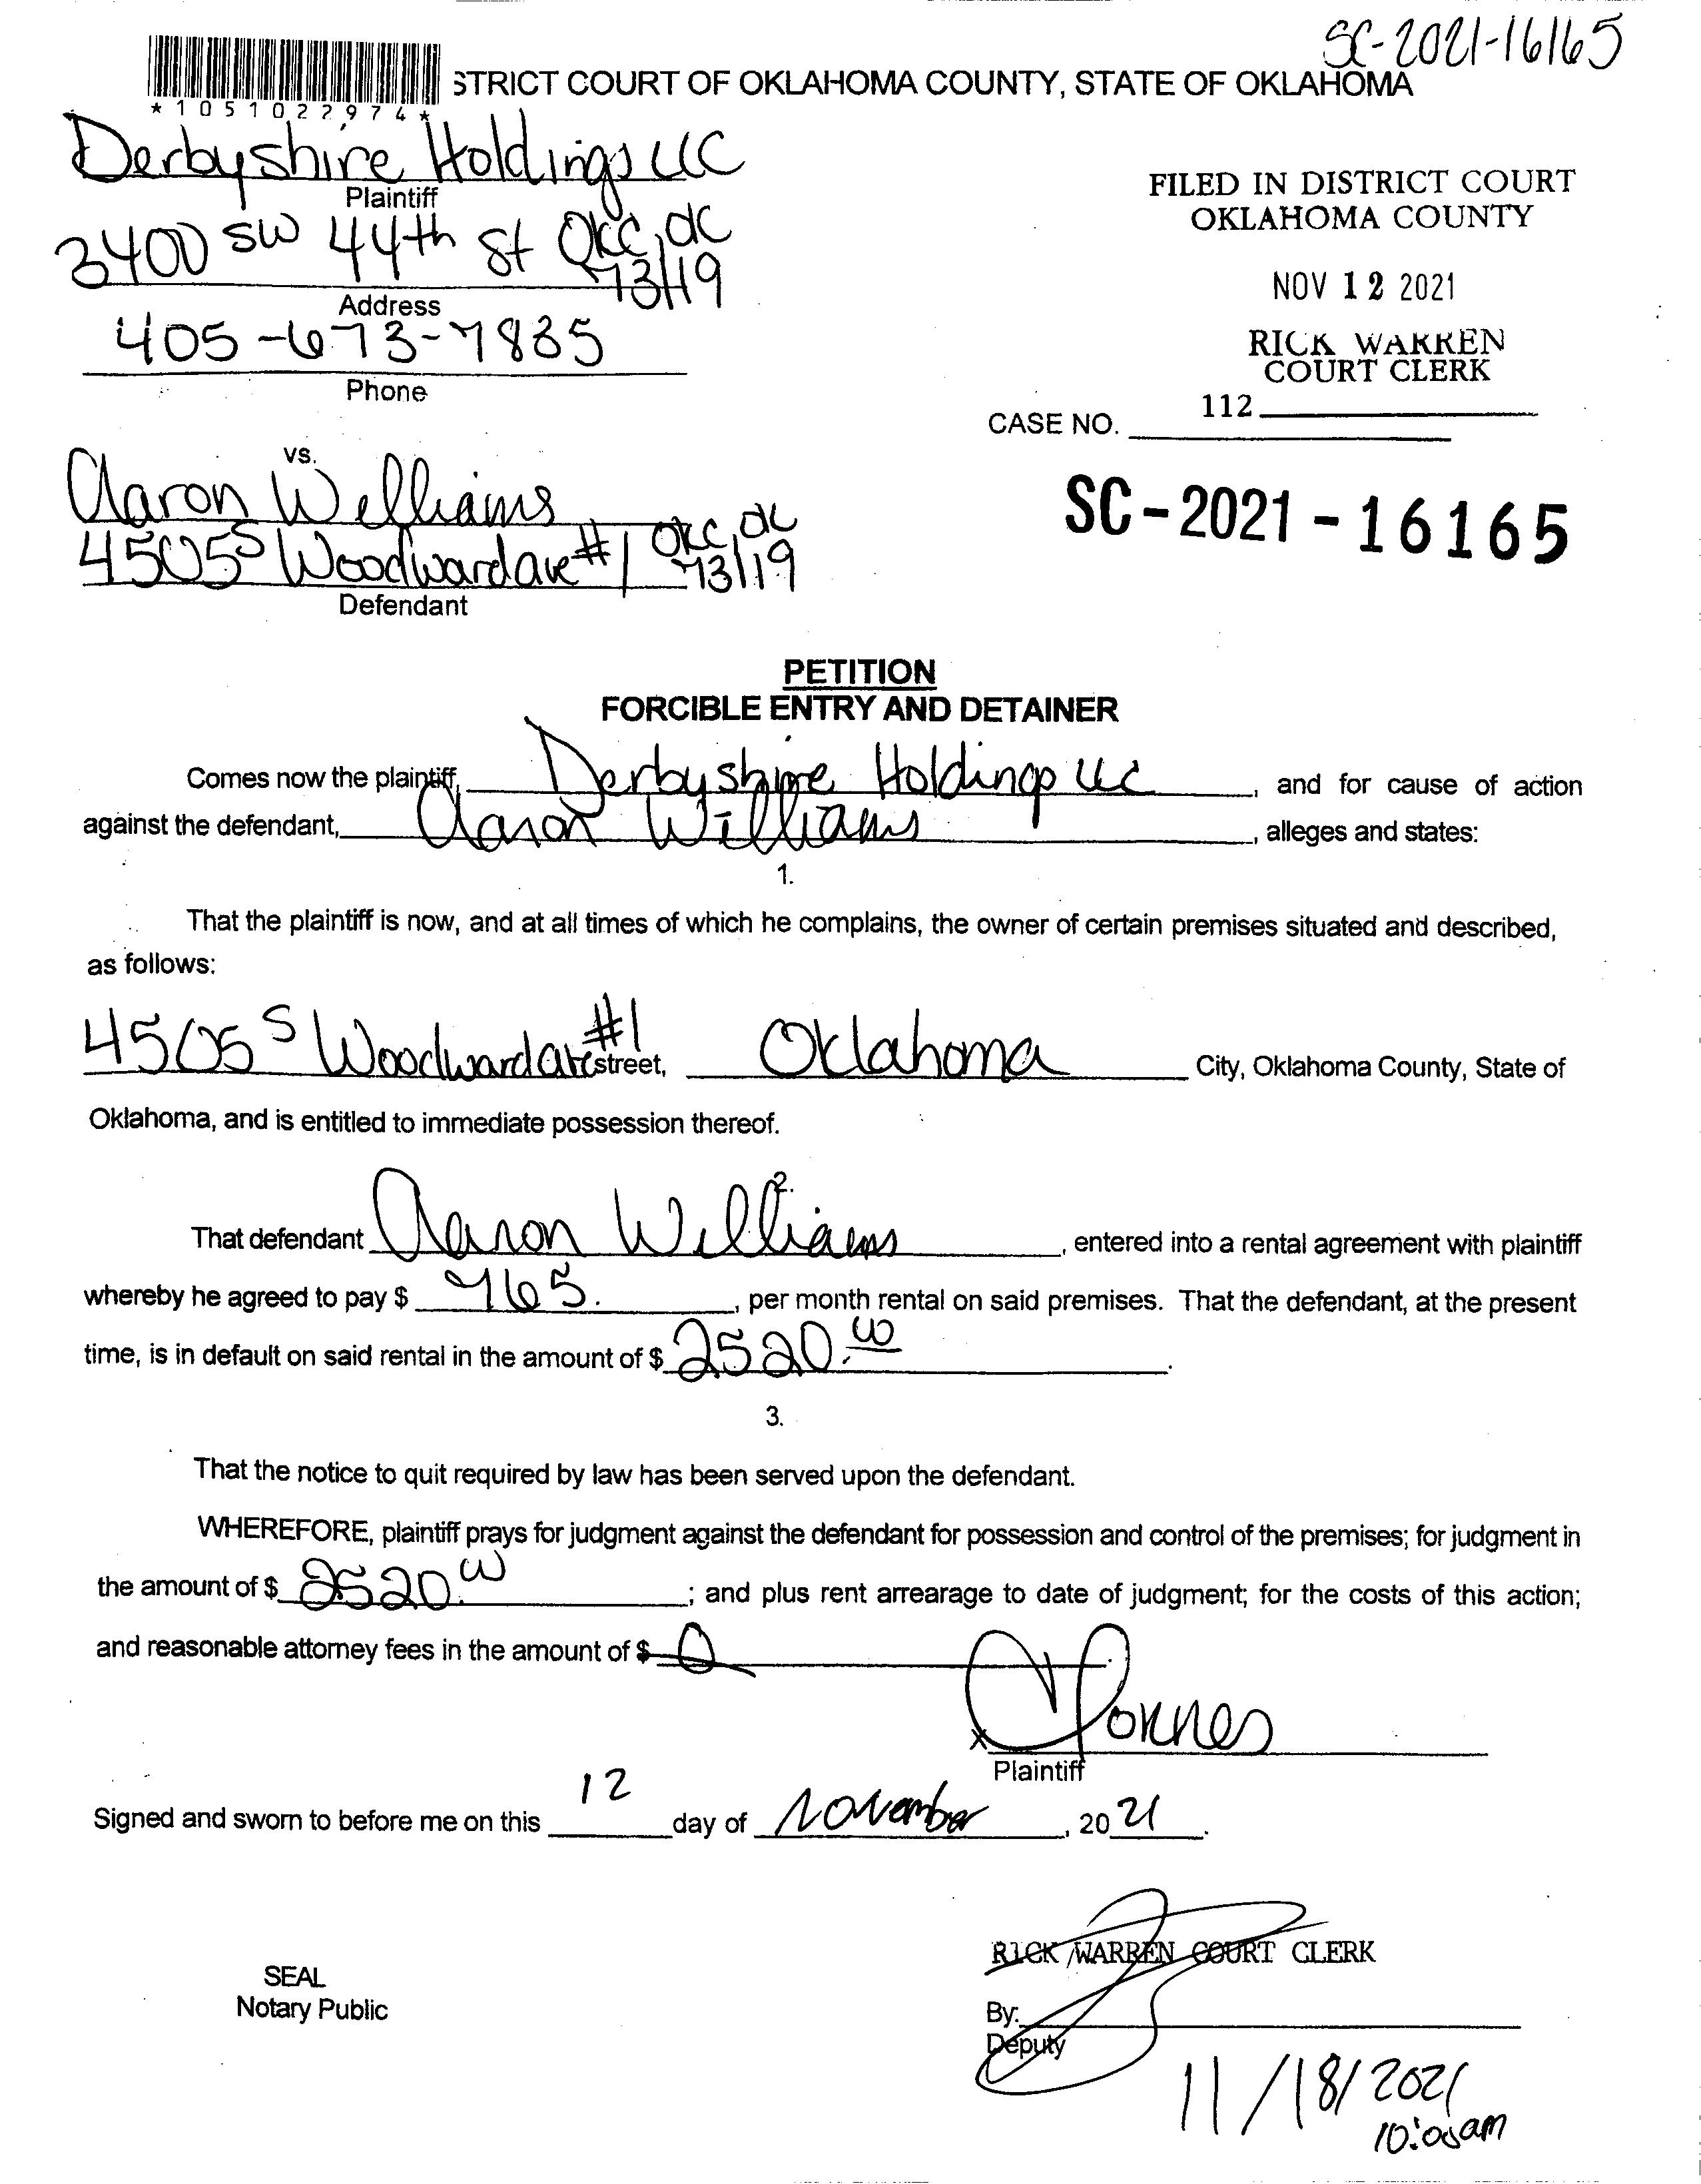 SC-2021-16165
STRICT COURT OF OKLAHOMA COUNTY, STATE OF OKLAHOMA
*1051022974*
Derbyshire Holdings LLC
Plaintiff
3400 SW 44th St OKC, OK
73119
Address
405-673-7835
Phone
FILED IN DISTRICT COURT
OKLAHOMA COUNTY
NOV 12 2021
RICK WARREN
COURT CLERK
112
CASE NO.
SC-2021-16165
vs.
Aaron Williams
4505 S Woodward ave #1 OKC, OK
73119
Defendant
PETITION
FORCIBLE ENTRY AND DETAINER
Comes now the plaintiff, Derbyshire Holdings LLC, and for cause of action
against the defendant, Aaron Williams, alleges and states:
1.
That the plaintiff is now, and at all times of which he complains, the owner of certain premises situated and described,
as follows:
4505 S Woodward ave #1 street, Oklahoma City, Oklahoma County, State of
Oklahoma, and is entitled to immediate possession thereof.
2.
That defendant Aaron Williams, entered into a rental agreement with plaintiff
whereby he agreed to pay $ 765., per month rental on said premises. That the defendant, at the present
time, is in default on said rental in the amount of $ 2520.00.
3.
That the notice to quit required by law has been served upon the defendant.
WHEREFORE, plaintiff prays for judgment against the defendant for possession and control of the premises; for judgment in
the amount of $ 2520.00; and plus rent arrearage to date of judgment; for the costs of this action;
and reasonable attorney fees in the amount of $ 0.
x
Plaintiff
Signed and sworn to before me on this 12 day of November, 2021.
RICK WARREN COURT CLERK
SEAL
Notary Public
By:
Deputy
11/18/2021
10:00am